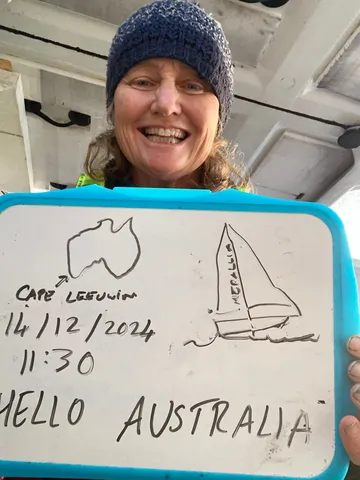 CAPE LEEUWIN
14/12/2024
11:30
HELLO AUSTRALIA